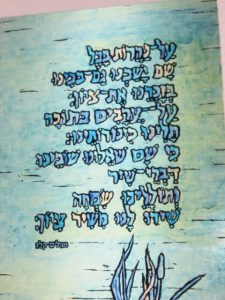 על נהרות בבל
שם ישבנו גם-בכינו
בזכרנו את-ציון:
על-ערבים בתוכה
תלינו כינורותינו:
כי שם שאלונו שובינו
דברי-שיר
ותוללינו שמחה
שירו לנו משיר ציון:
תהלים קלז